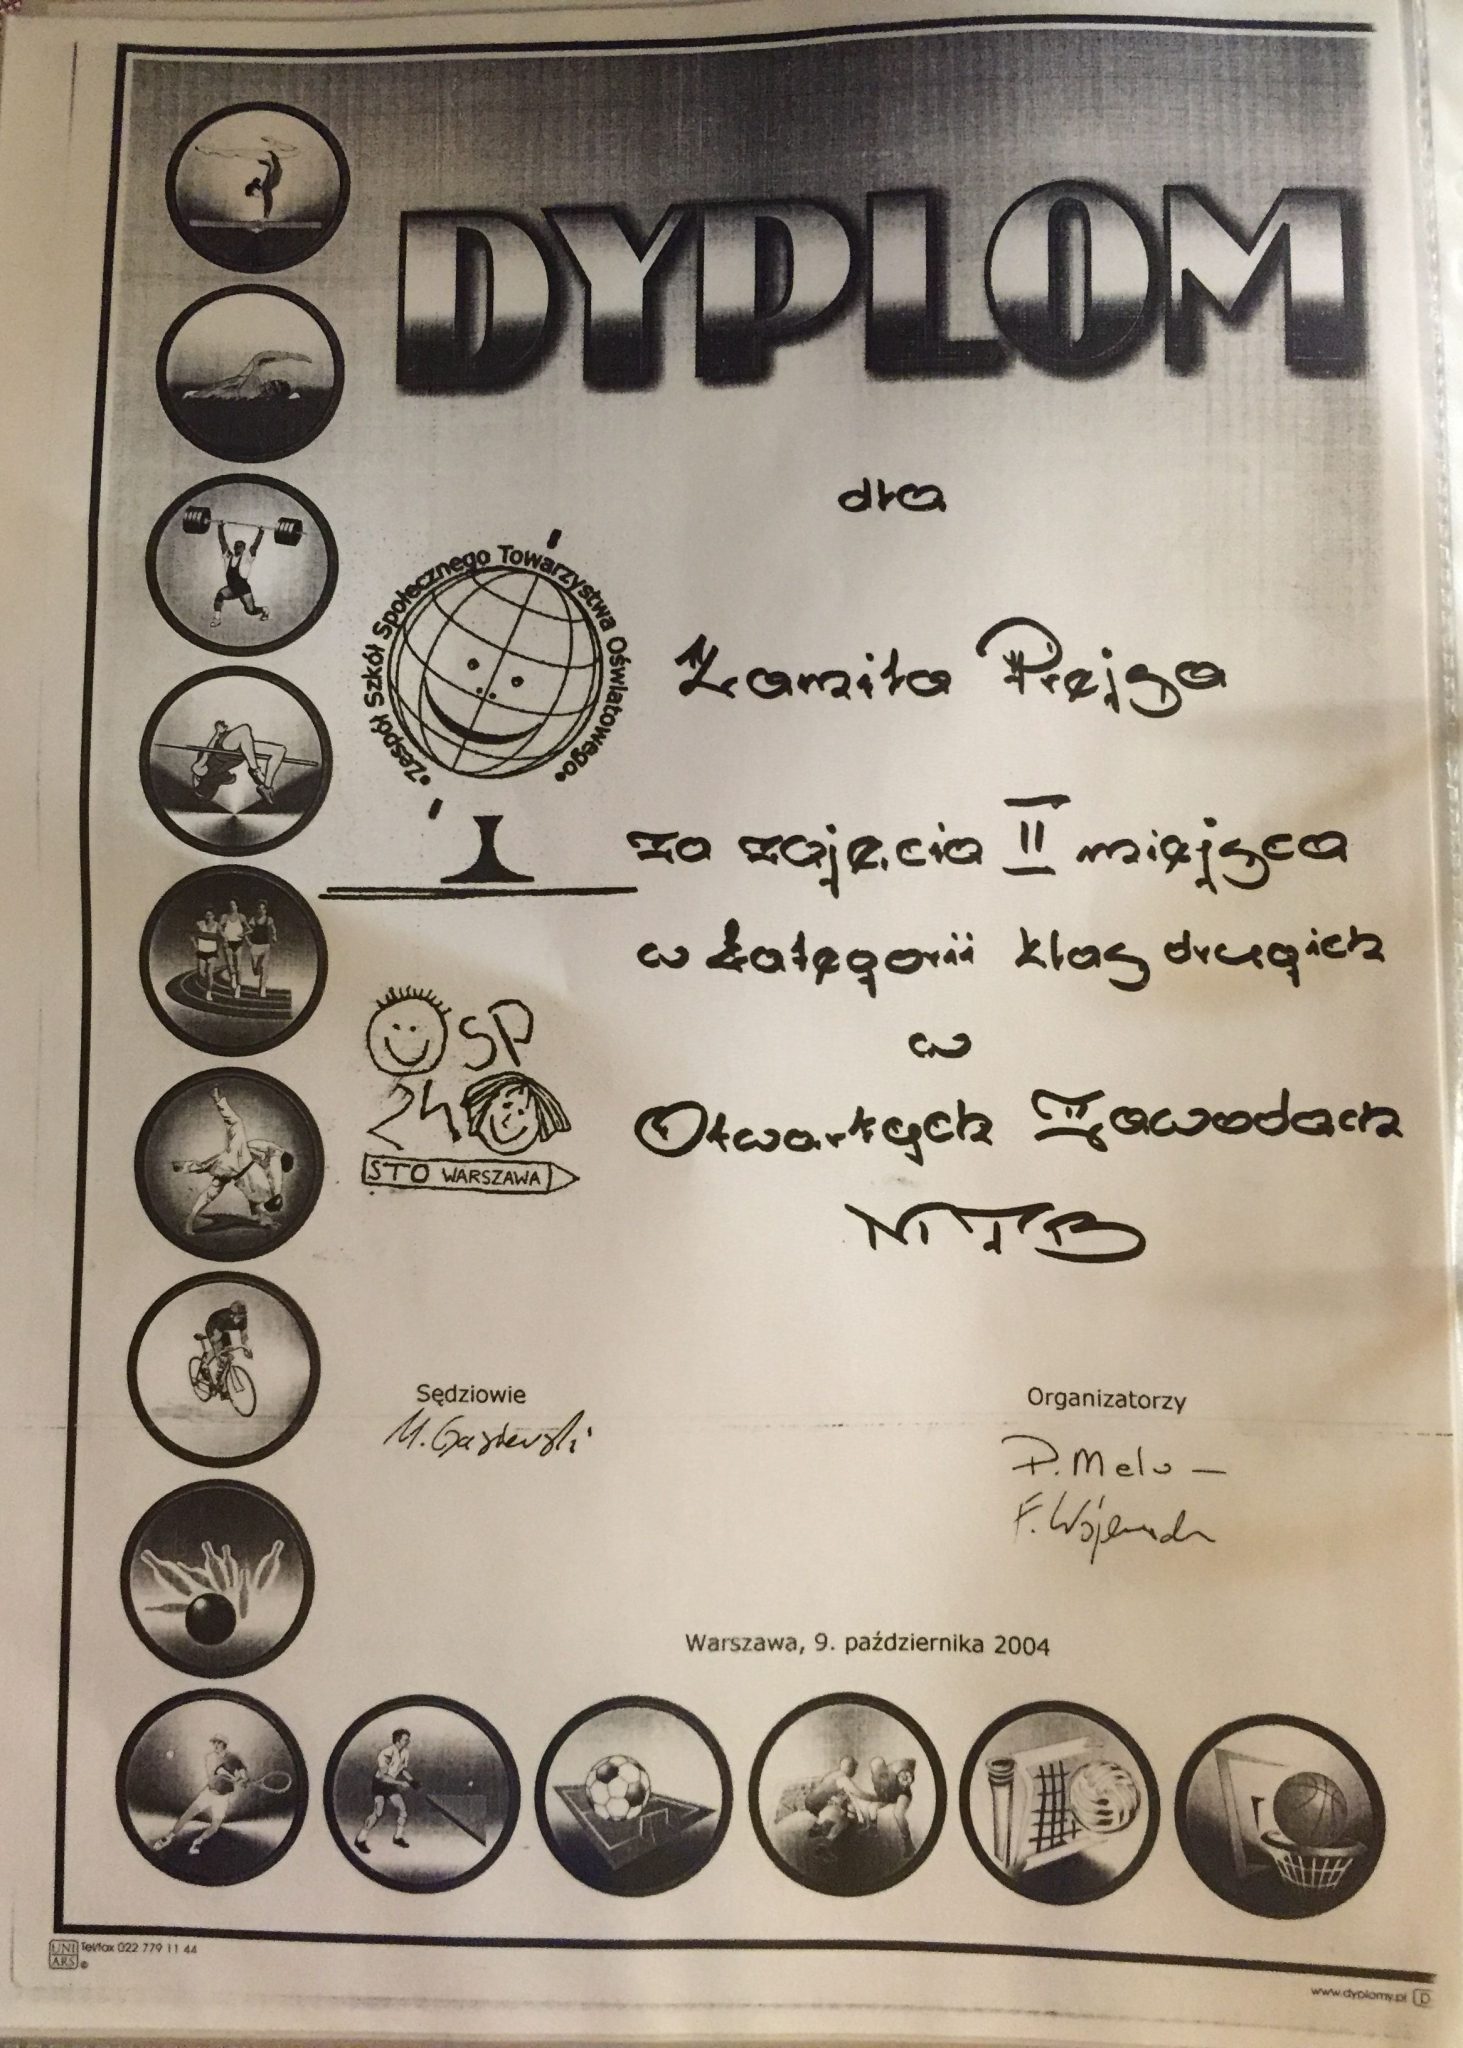 DYPLOM
dla
•Zespół Szkół Społecznego Towarzystwa Oświatowego•
Kamila Prejsa
za zajęcia II miejsca
w kategorii klas drugich
w
SP
24
STO WARSZAWA
Otwartych Zawodach
MTB
Sędziowie
Organizatorzy
P. Mel
F.
Warszawa, 9. października 2004
UNI
ARS
Tel/fax 022 779 11 44
www.dyplomy.pl